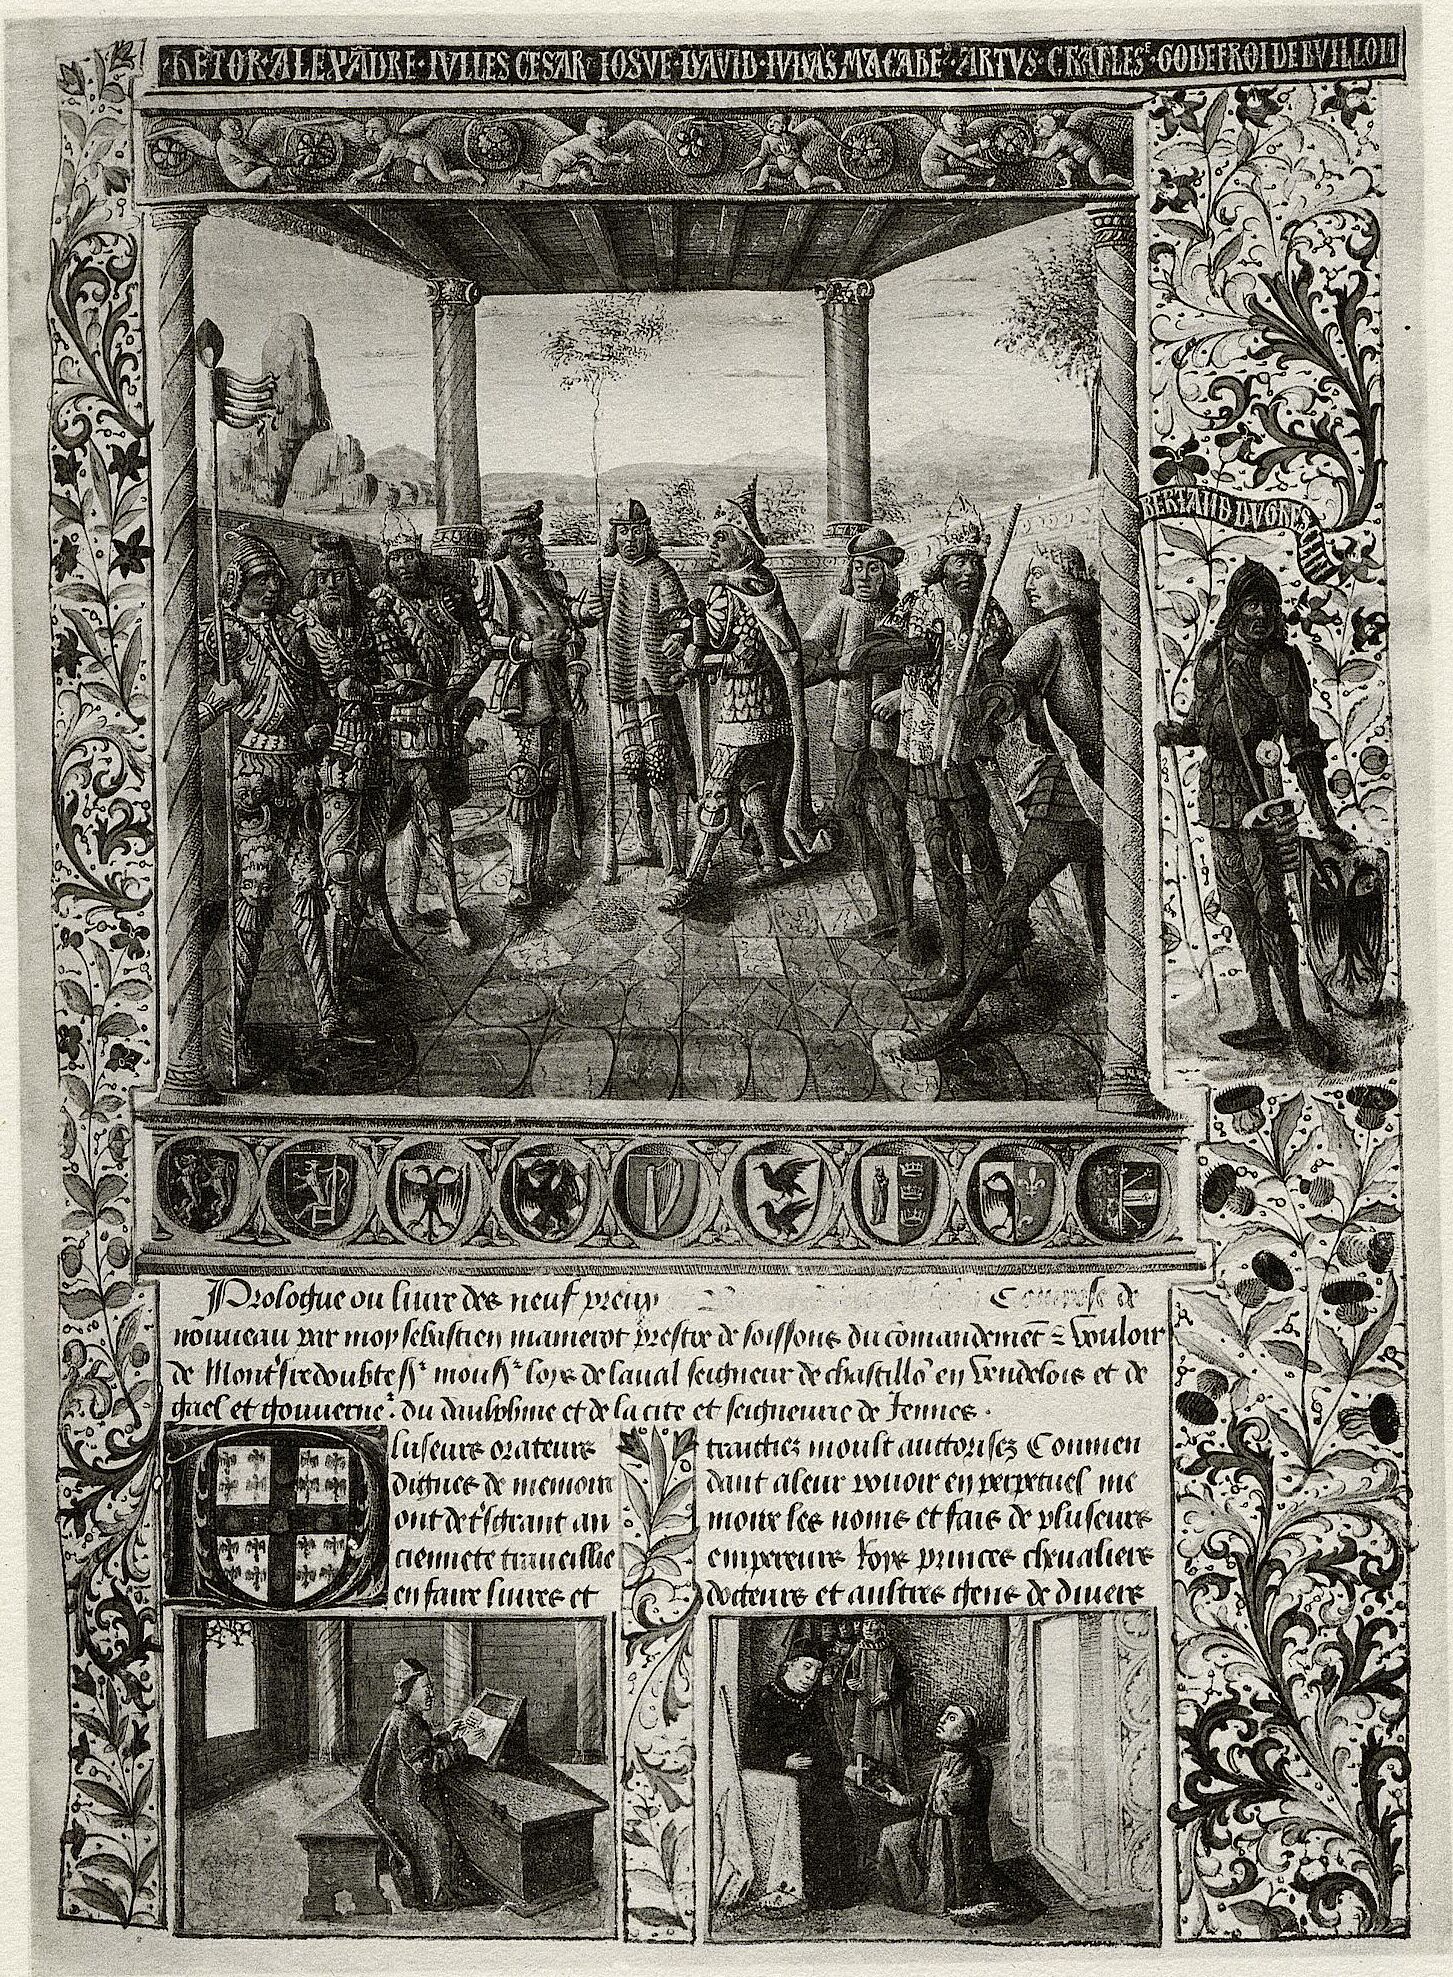 HETOR · ALEXĀDRE · IVLLES CESAR · IOSVE · DAVID · IVDAS MACABE · ARTVS · CHARLES · GODEFROI DE BVILLON
BERTAND DV GUES
Prologue ou liure des neuf preux Compose de
nouueau par moy sebastien mamerot prestre de soissons du comandemēt vouloir
de Mont redoubte loys de laual seigneur de chastillō en vendelois et de
gael et gouuerne du daulphine et de la cite et seigneurie de Jennes ·
Pluseurs orateurs
dignes de memoire
ont desirant an
ciennete traueillie
en faire liures et
traictiez moult auctorisez Conmen
dant a leur pouoir en perpetuel me
moire les noms et fais de pluseurs
empereurs Roys princes cheualiers
docteurs et aultres gens de diuers